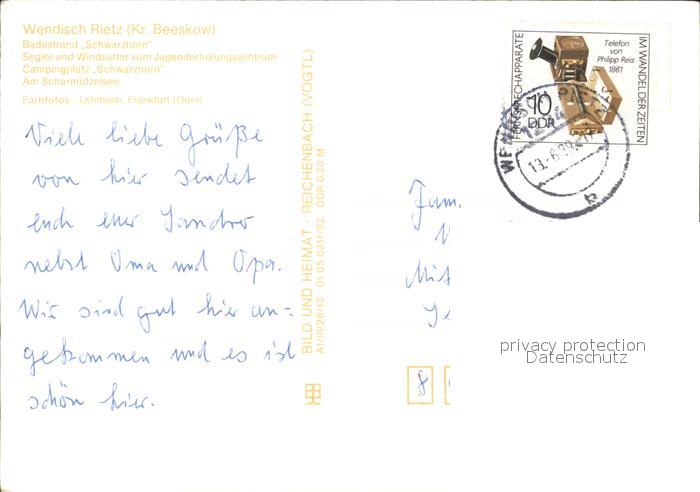 Wendisch Rietz (Kr. Beeskow)
Badestrand „Schwarzhorn"
Segler und Windsurfer vom Jugenderholungszentrum
Campingplatz „Schwarzhorn"
Am Scharmützelsee
Farbfotos: Lehmann, Frankfurt (Oder)
Viele liebe Grüße
von hier sendet
euch euer Sandro
nebst Oma und Opa.
Wir sind gut hier an=
gekommen und es ist
schön hier.
BILD UND HEIMAT · REICHENBACH (VOGTL)
A1/III/26/13 01 05 0311/02 DDR 0,20 M
FERNSPRECHAPPARATE
IM WANDEL DER ZEITEN
Telefon
von
Philipp Reis
1861
10
DDR
13.-6.89
b
Fam.
Mit
8
privacy protection
Datenschutz